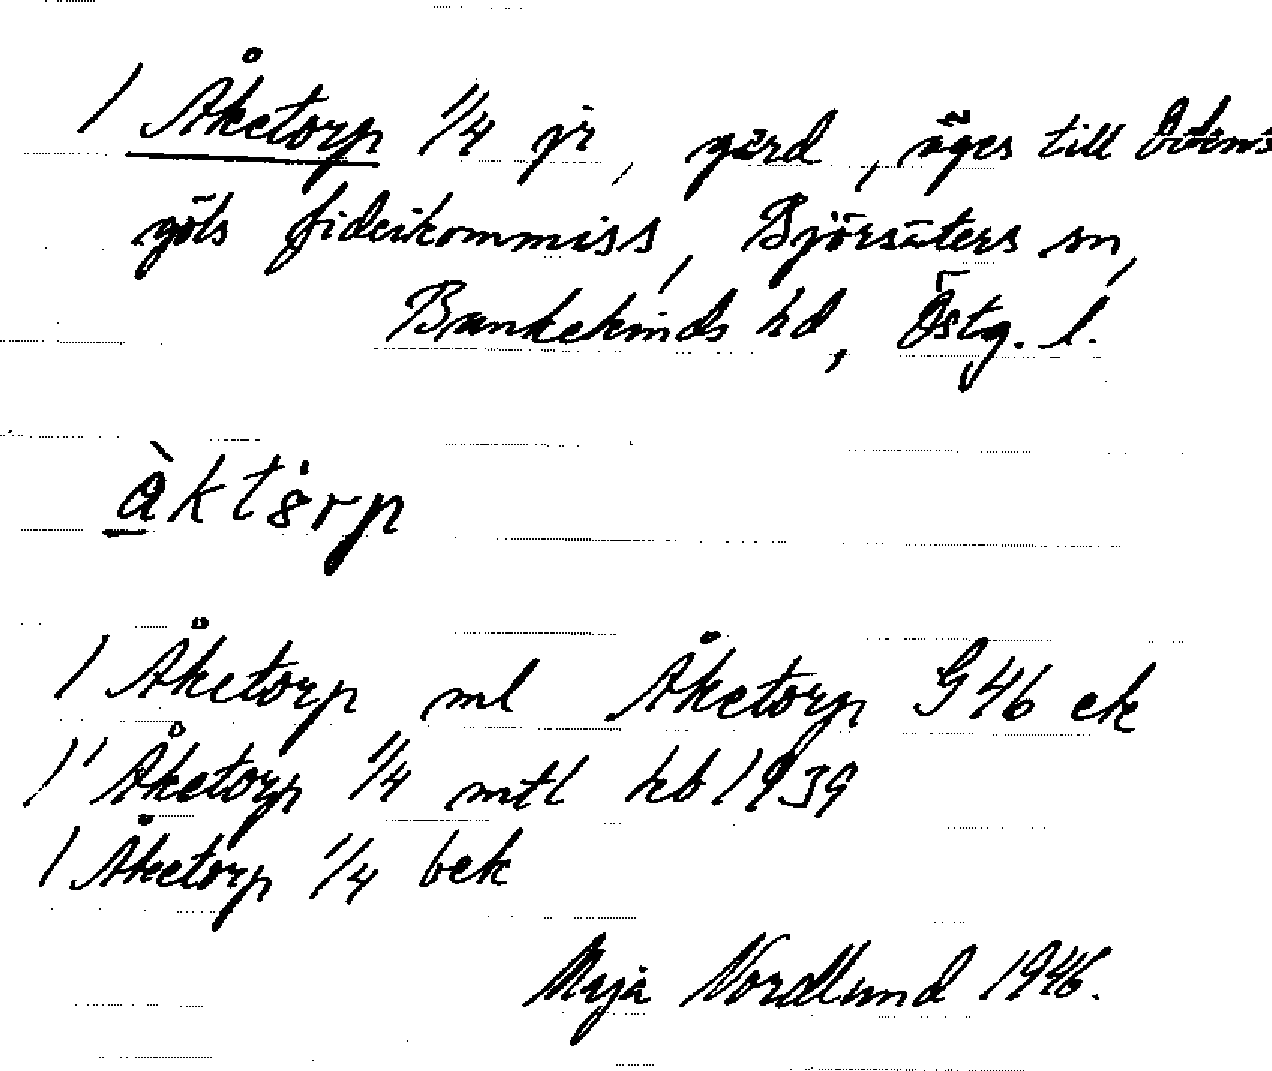 / Åketorp 1/4 fr, gård, äges till
göts fideikommiss, Björsäters sn,
Bankekinds hd, Östg. l.
àktȯrp
/ Åketorp ml Åketorp G 46 ek
/' Åketorp 1/4 mtl hb 1939
/ Åketorp 1/4 bek
Maja Nordlund 1946.